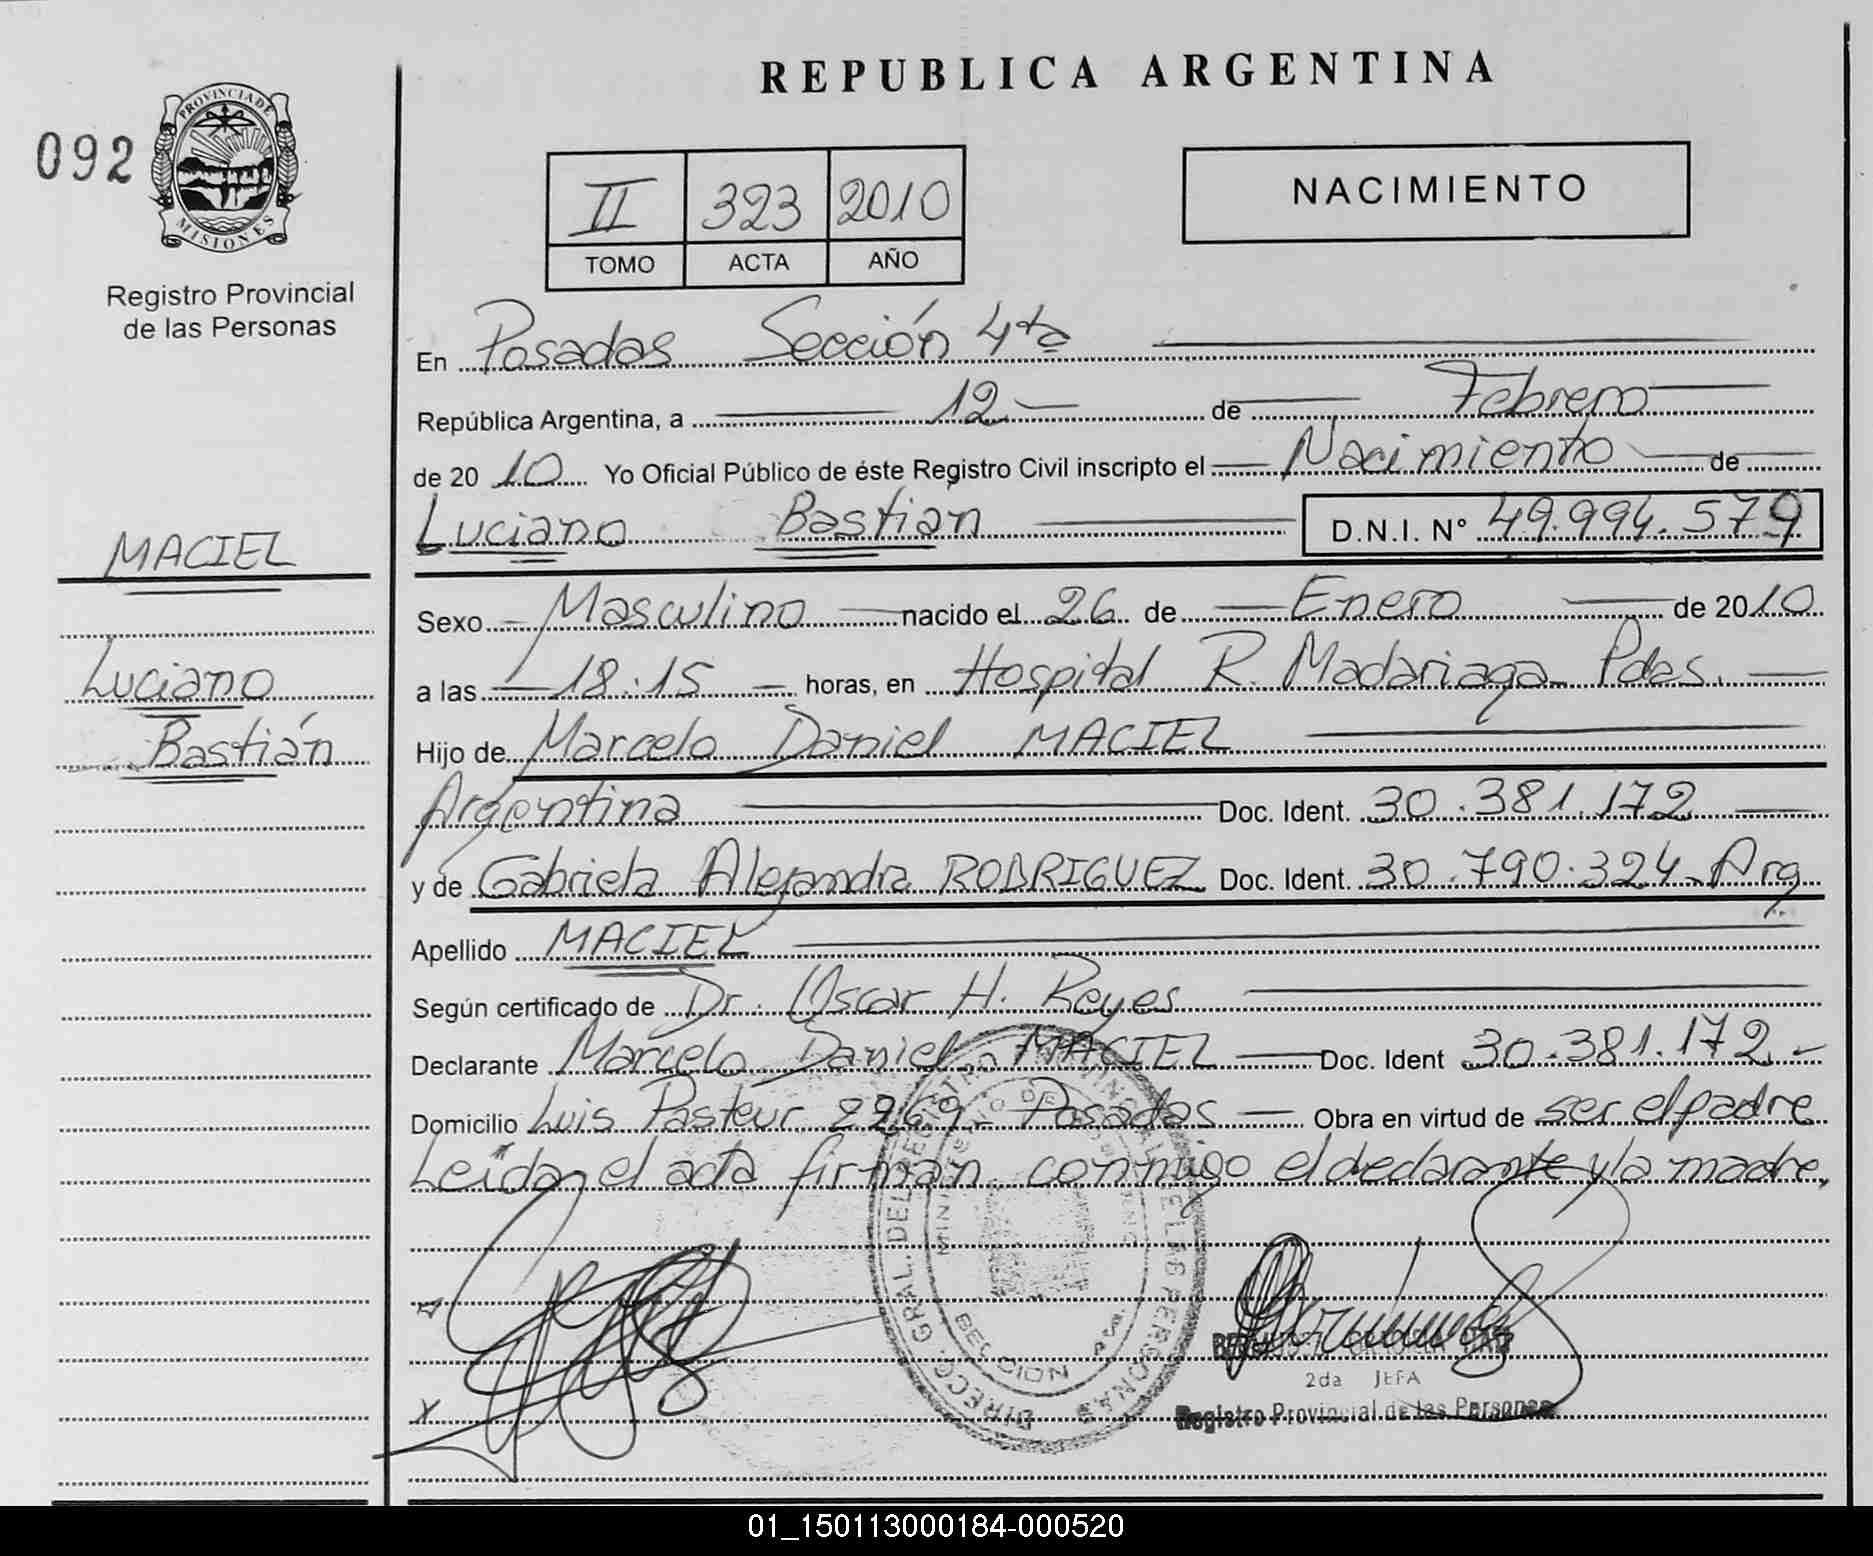 REPUBLICA ARGENTINA
092
PROVINCIA DE
MISIONES
Registro Provincial
de las Personas
II 323 2010
TOMO ACTA AÑO
NACIMIENTO
En Posadas Sección 4ta
República Argentina, a 12 de Febrero
de 20 10 Yo Oficial Público de éste Registro Civil inscripto el Nacimiento de
Luciano Bastian D.N.I. N° 49.994.579
MACIEL
Luciano
Bastián
Sexo Masculino nacido el 26 de Enero de 2010
a las 18:15 horas, en Hospital R. Madariaga Pdas.
Hijo de Marcelo Daniel MACIEL
Argentina Doc. Ident. 30.381.172
y de Gabriela Alejandra RODRIGUEZ Doc. Ident. 30.790.324 Arg
Apellido MACIEL
Según certificado de Dr. Oscar H. Reyes
Declarante Marcelo Daniel MACIEL Doc. Ident 30.381.172
Domicilio Luis Pasteur 2269 - Posadas Obra en virtud de ser el padre
Leída el acta firman conmigo el declarante y la madre,
DIRECC. GRAL. DEL REGISTRO PROVINCIAL DE LAS PERSONAS
2da JEFA
Registro Provincial de las Personas
01_150113000184-000520